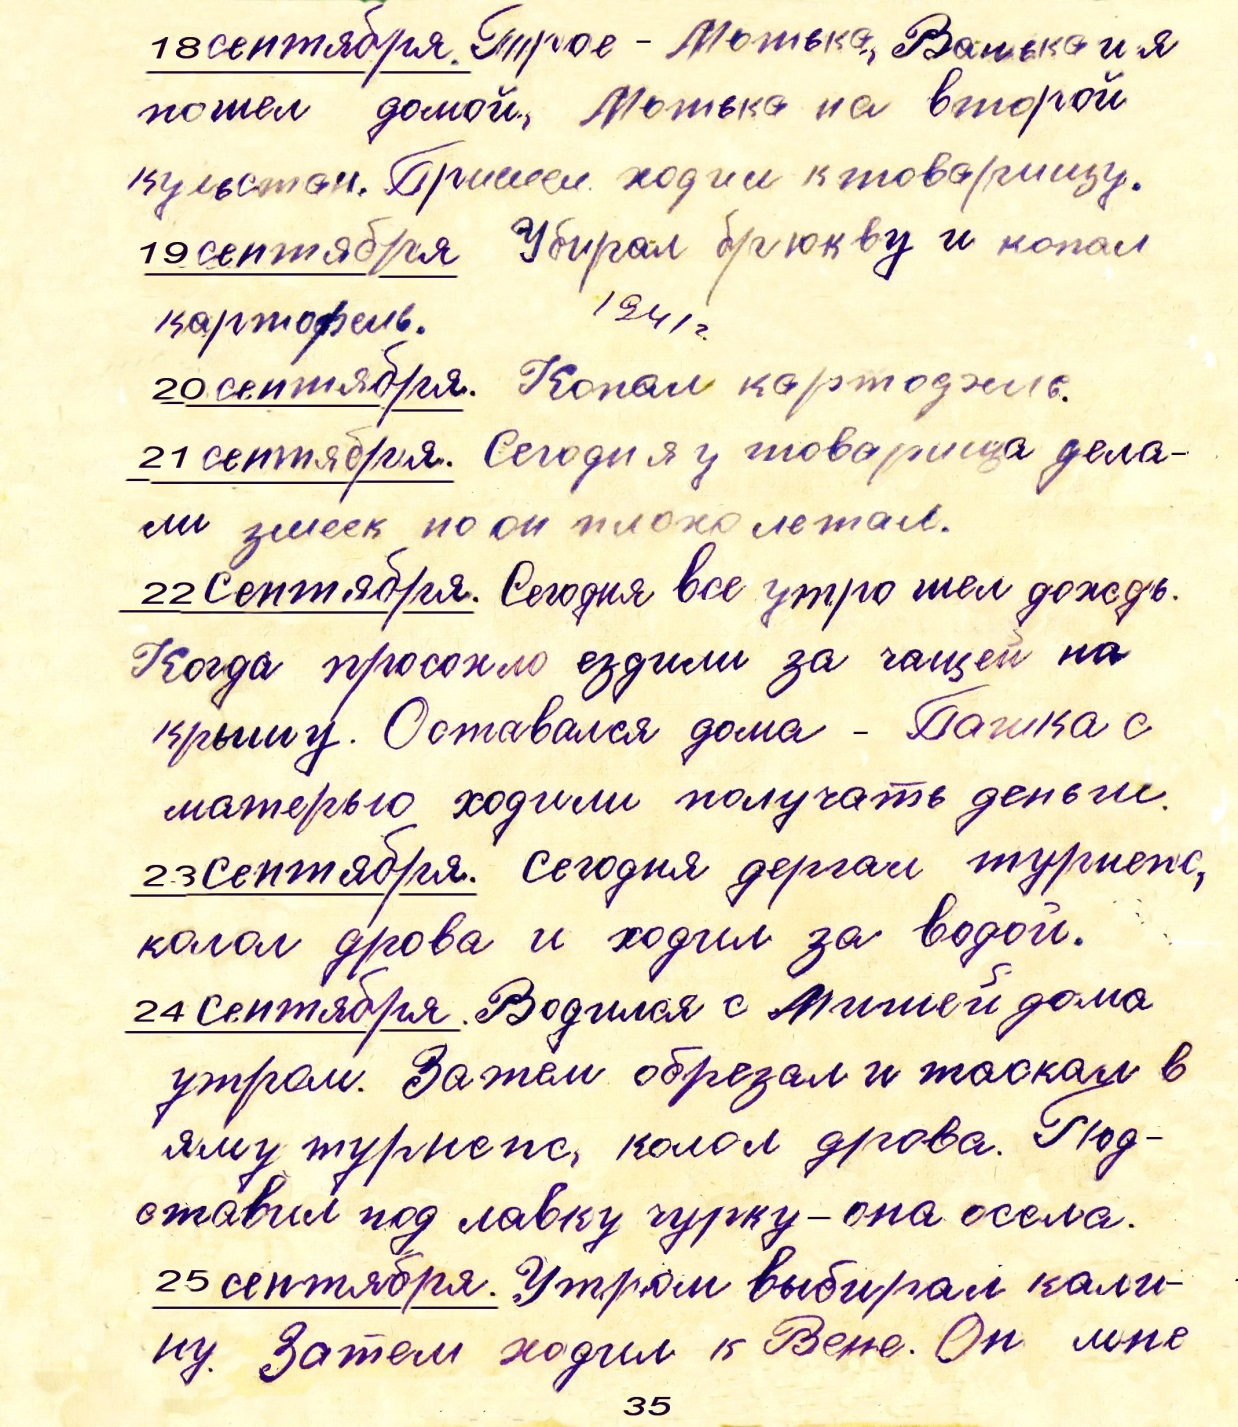 18 сентября. Трое - Мотька, Ванька и я
пошел домой, Мотька на второй
кульстан. Пришел ходил к товарищу.
19 сентября Убирал брюкву и копал
картофель. 1941 г.
20 сентября. Копал картофель.
21 сентября. Сегодня у товарища дела-
ли змеек но он плохо летал.
22 Сентября. Сегодня все утро шел дождь.
Когда просохло ездили за чащей на
крышу. Оставался дома - Пашка с
матерью ходили получать деньги.
23 Сентября. Сегодня дергал турнепс,
колол дрова и ходил за водой.
24 Сентября. Водился с Мишей дома
утром. Затем обрезал и таскал в
яму турнепс, колол дрова. Под-
ставил под лавку чурку - она осела.
25 сентября. Утром выбирал кали-
ну. Затем ходил к Вене. Он мне
35